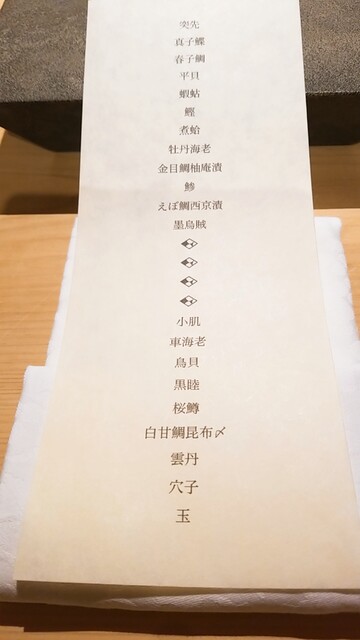 突先
真子鰈
春子鯛
平貝
蝦蛄
鰹
煮蛤
牡丹海老
金目鯛柚庵漬
鯵
えぼ鯛西京漬
墨烏賊
小肌
車海老
鳥貝
黒睦
桜鱒
白甘鯛昆布〆
雲丹
穴子
玉